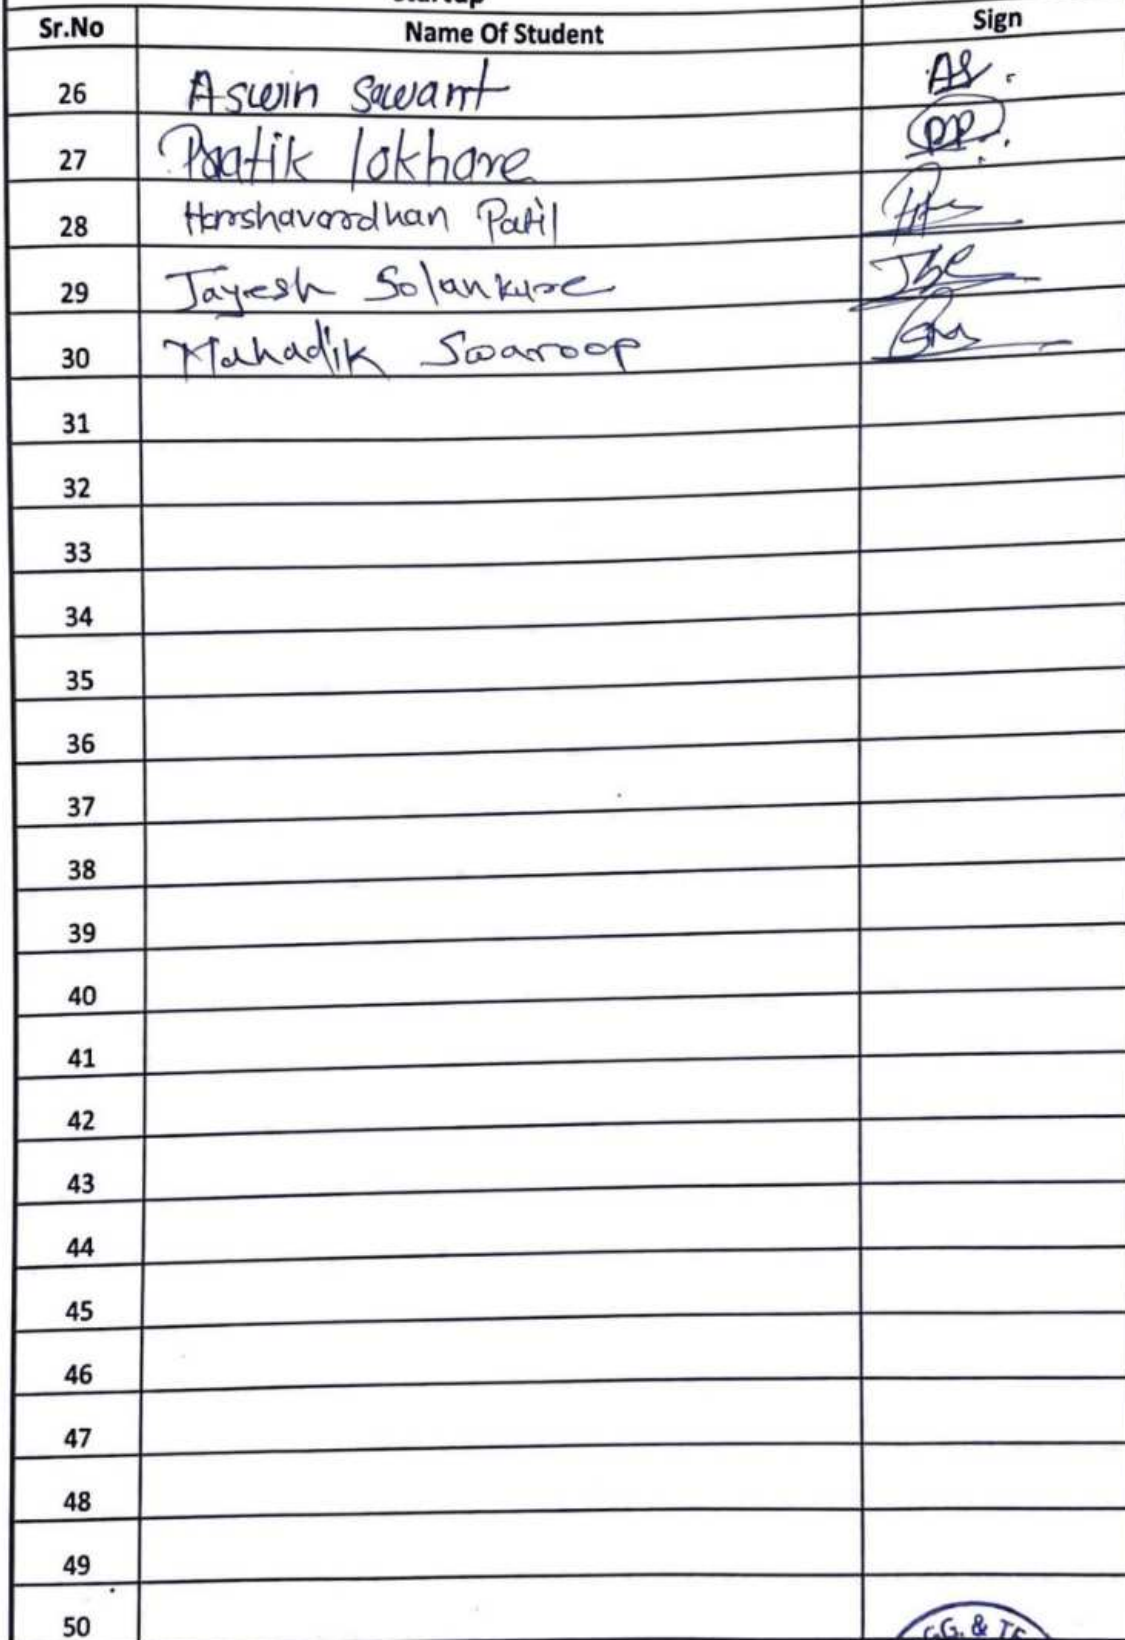 Startup
Sr.No Name Of Student Sign
26 Aswin Sawant AS.
27 Pratik lokhare PP.
28 Harshavardhan Patil
29 Jayesh Solankure JSC
30 Mahadik Swaroop
31
32
33
34
35
36
37
38
39
40
41
42
43
44
45
46
47
48
49
50
GG. & TE